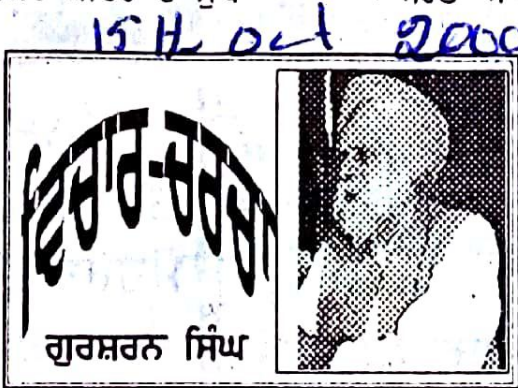 15th Oct 2000
ਵਿਚਾਰ-ਚਰਚਾ
ਗੁਰਸ਼ਰਨ ਸਿੰਘ